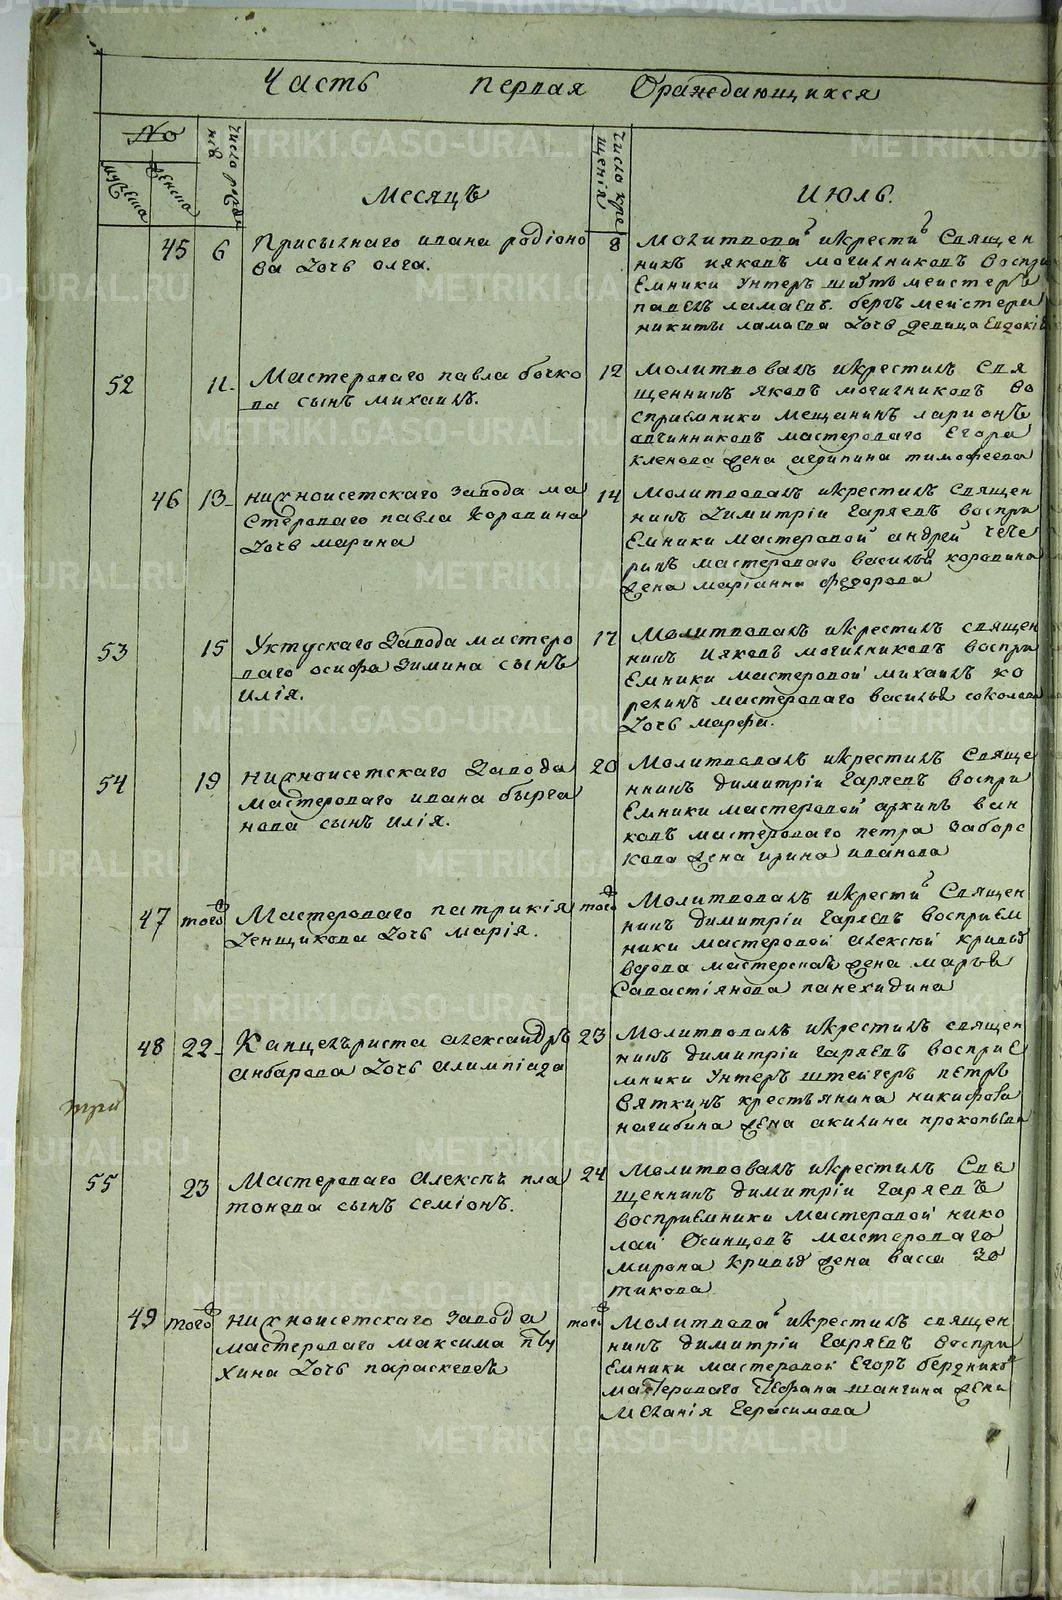 METRIKI.GASO-URAL.RU
Часть первая Оражедающихся
No
мужеска
женска
число рожде
нiя
Месяцъ
число кре
щенiя
Июль.
45 6 Присычнаго ивана родiоно
ва дочь олга.
8 Молитвовалъ икрестилъ Священ
никъ иаковъ могильниковъ воспри
Емники Унтеръ шихтъ мейстеръ
павелъ ламаевъ. бергъ мейстера
никиты ламаева дочь девица Евдокiя
52 11 Мастероваго павла бочко
ва сынъ михаилъ.
12 Молитвовалъ икрестилъ Свя
щенникъ Яковъ могильниковъ во
сприемники мещанинъ ларионъ
овчинниковъ мастероваго Егора
кленова жена агрипина тимофеева
46 13 нижноисетскаго завода ма
стероваго павла Коровина
дочь марина
14 Молитвовалъ икрестилъ Священ
никъ Димитрiи Гаряевъ воспри
Емники мастеровой андрей чече
ринъ мастероваго василья коровина
жена марiанна федорова
53 15 Уктускаго Завода мастеро
ваго осифа Зимина сынъ
илiя.
17 Молитвовалъ икрестилъ священ
никъ Иаковъ могильниковъ воспри
Емники мастеровой михаилъ ко
релинъ мастероваго василья соколова
дочь марфа.
54 19 нижноисетскаго Завода
мастероваго ивана бырга
нова сынъ илiя.
20 Молитвовалъ икрестилъ Свяще
нникъ димитрiи Гаряевъ воспри
Емники мастеровой архипъ ван
ковъ мастероваго петра Заборс
кова жена ирина иванова
47 того Мастероваго патрикiя
Денщикова дочь марiя.
того Молитвовалъ икрести Священ
никъ димитрiи Гаряевъ восприем
ники мастеровой алексей кривыхъ
вдова мастерская жена марья
Савастiянова панехидина
48 22 Канцеляриста александръ
анбарова дочь алимпiада
23 Молитвовалъ икрестилъ священ
никъ димитрiи Гаряевъ восприе
мники Унтеръ штейгеръ петръ
вяткинъ крестьянина никифора
нагибина жена акилина прокопьева
три
55 23 Мастероваго Алексъ пла
тонова сынъ семiонъ.
24 Молитвовалъ икрестилъ Свя
щенникъ димитрiи Гаряевъ
восприемники мастеровой нико
лай Осинцовъ мастероваго
мирона кривыхъ жена васса зо
тикова
49 того нижноисетскаго завода
мастероваго максима пту
хина дочь параскевея
того Молитвова икрестилъ священ
никъ димитрiи Гаряевъ воспри
емники мастеровой Егоръ бердниковъ
мастероваго стефана шангина жена
меланiя Герасимова